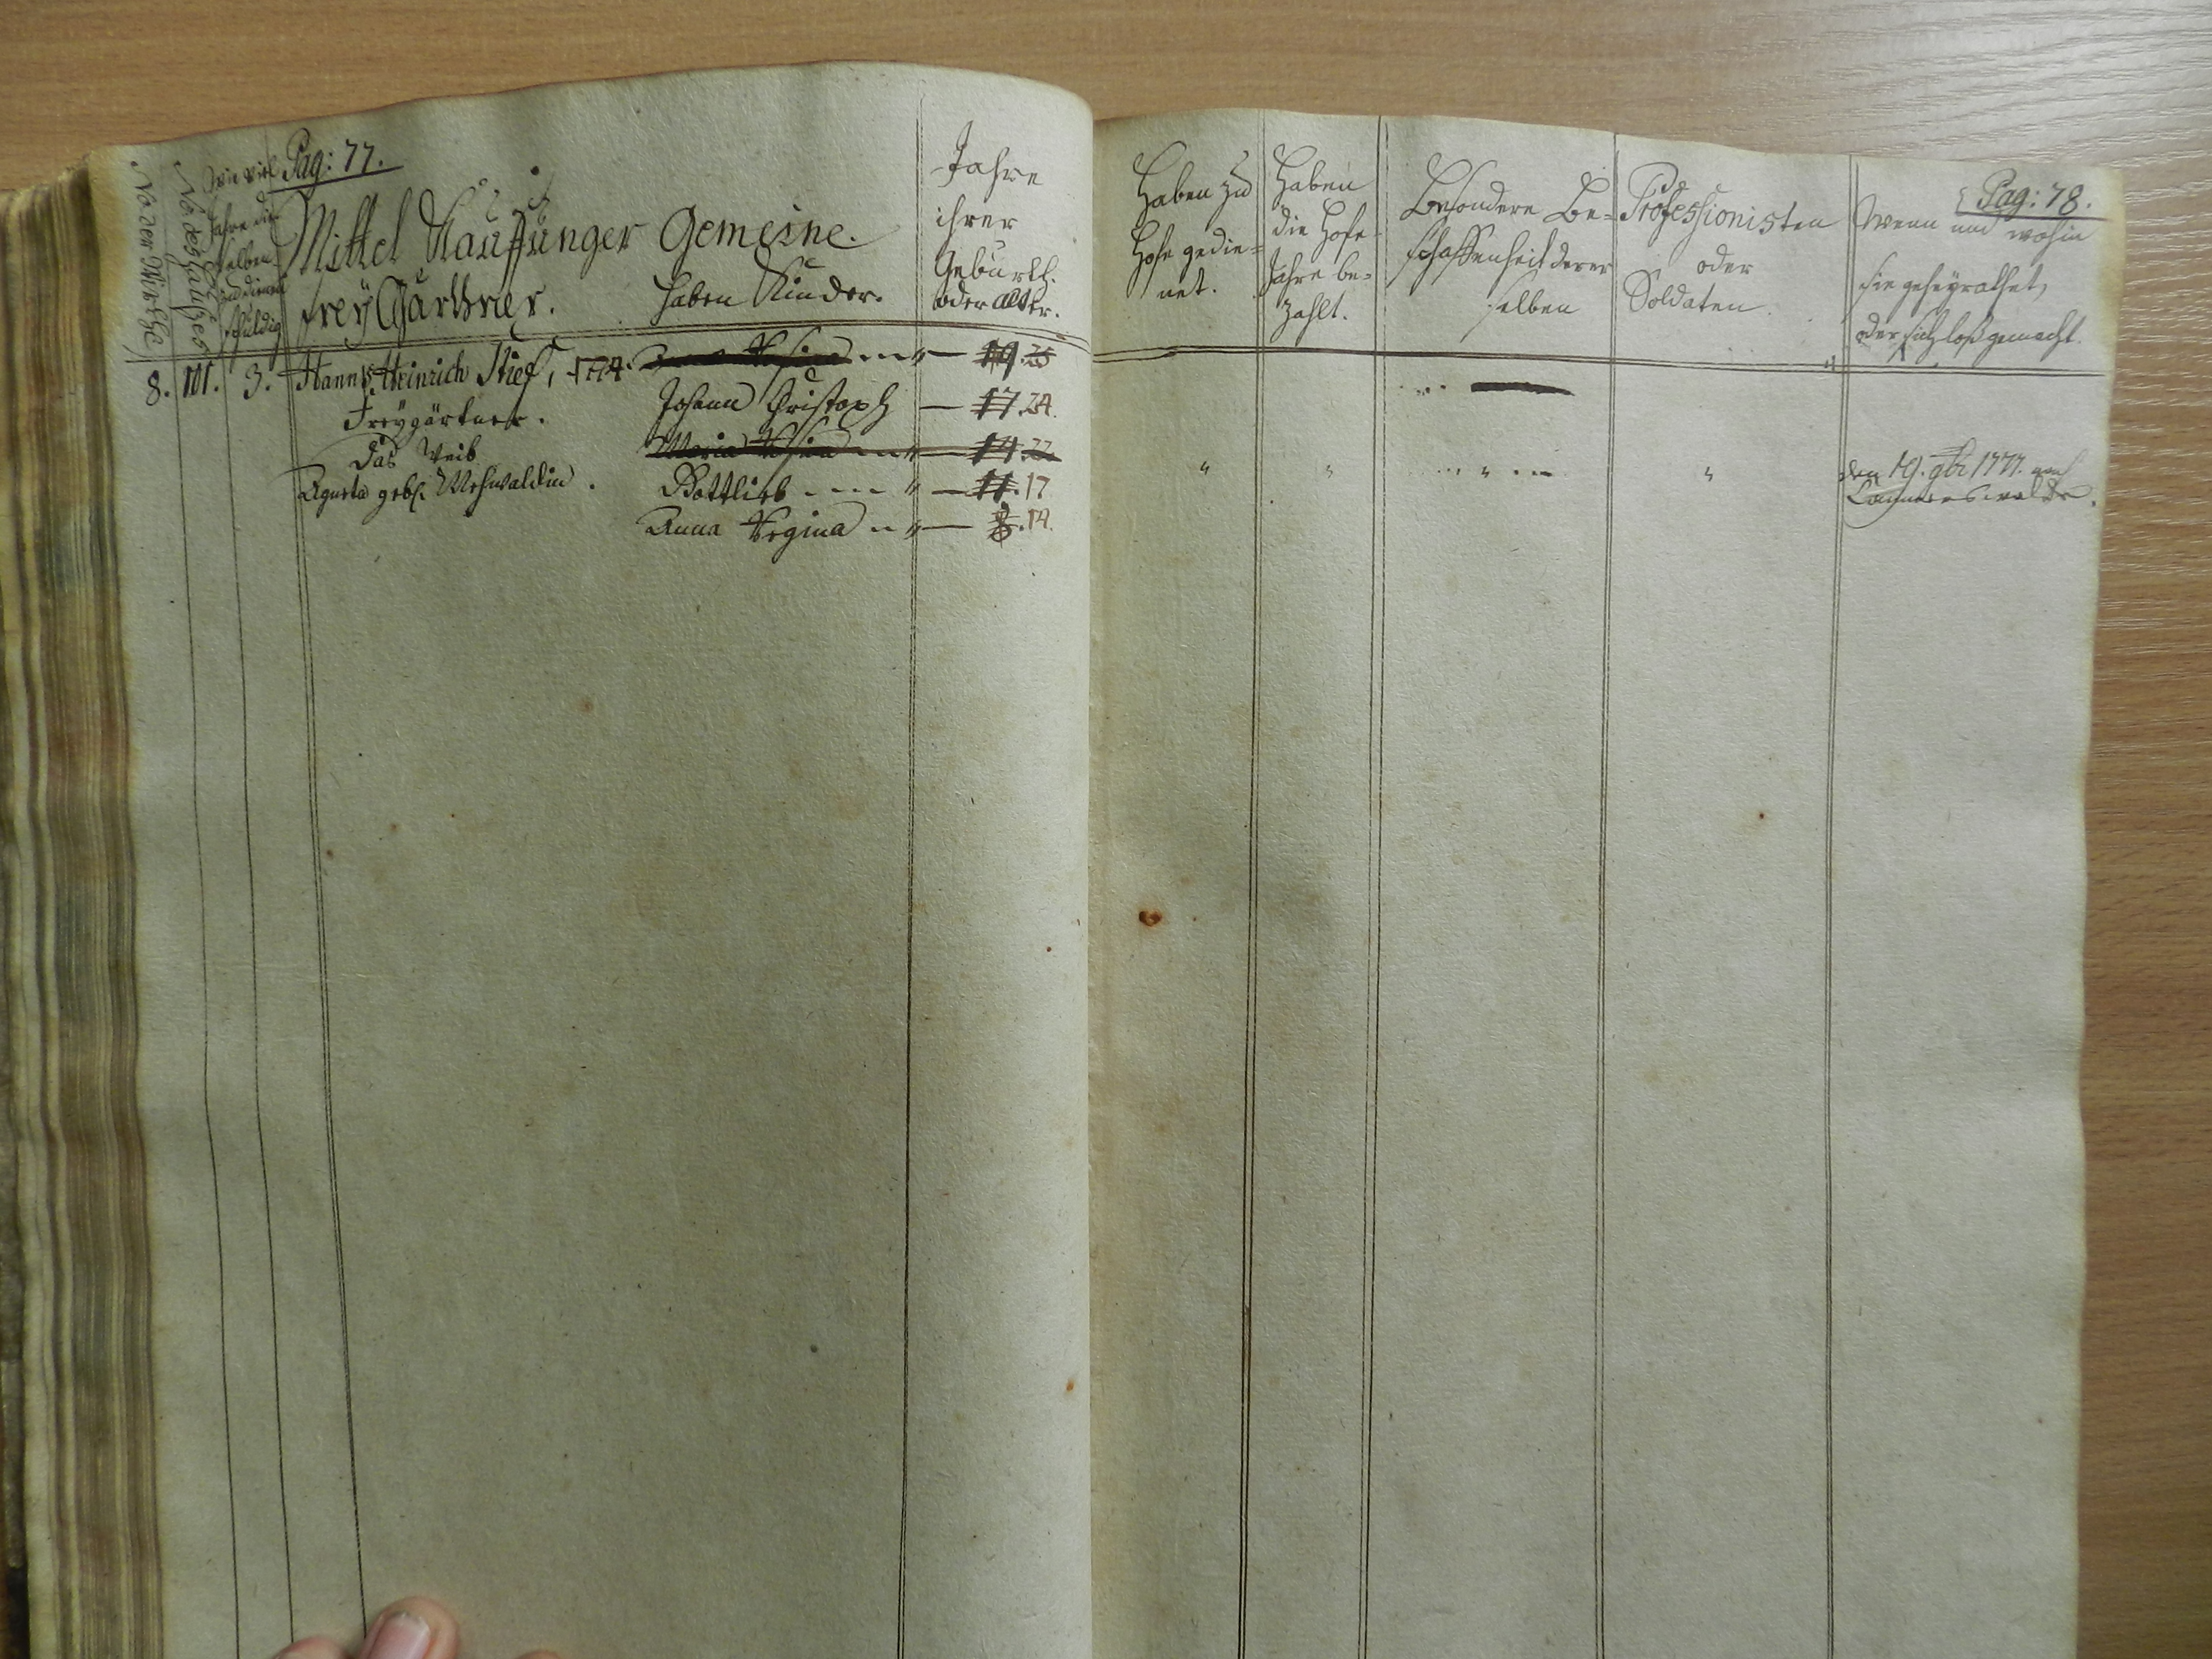 Pag: 77.
No der Wirthe
No des Hauses
Wie viel
Jahre die-
selben
zu dienen
schuldig
Mittel Kauffunger Gemeine.
Frey Gärthner.
haben Kinder.
Jahre
ihrer
Geburth.
oder Alter.
8. 101. 3. Hannß Heinrich Stief,
Freygärtner.
Das Weib
gebh.
Rosina 19. 25
Johann Christoph — 17. 24.
Maria Rosina — 14. 22
Gottlieb — 11. 17
Anna Regina — 8. 14.
Pag: 78.
Haben zu
Hofe gedie-
net.
Haben
die Hofe-
Jahre be-
zahlt.
Besondere Be-
schaffenheit derer
selben
Professionisten
oder
Soldaten.
Wenn und wohin
sie geheyrathet,
oder sich loß gemacht.
den 19. 9br 1777. nach